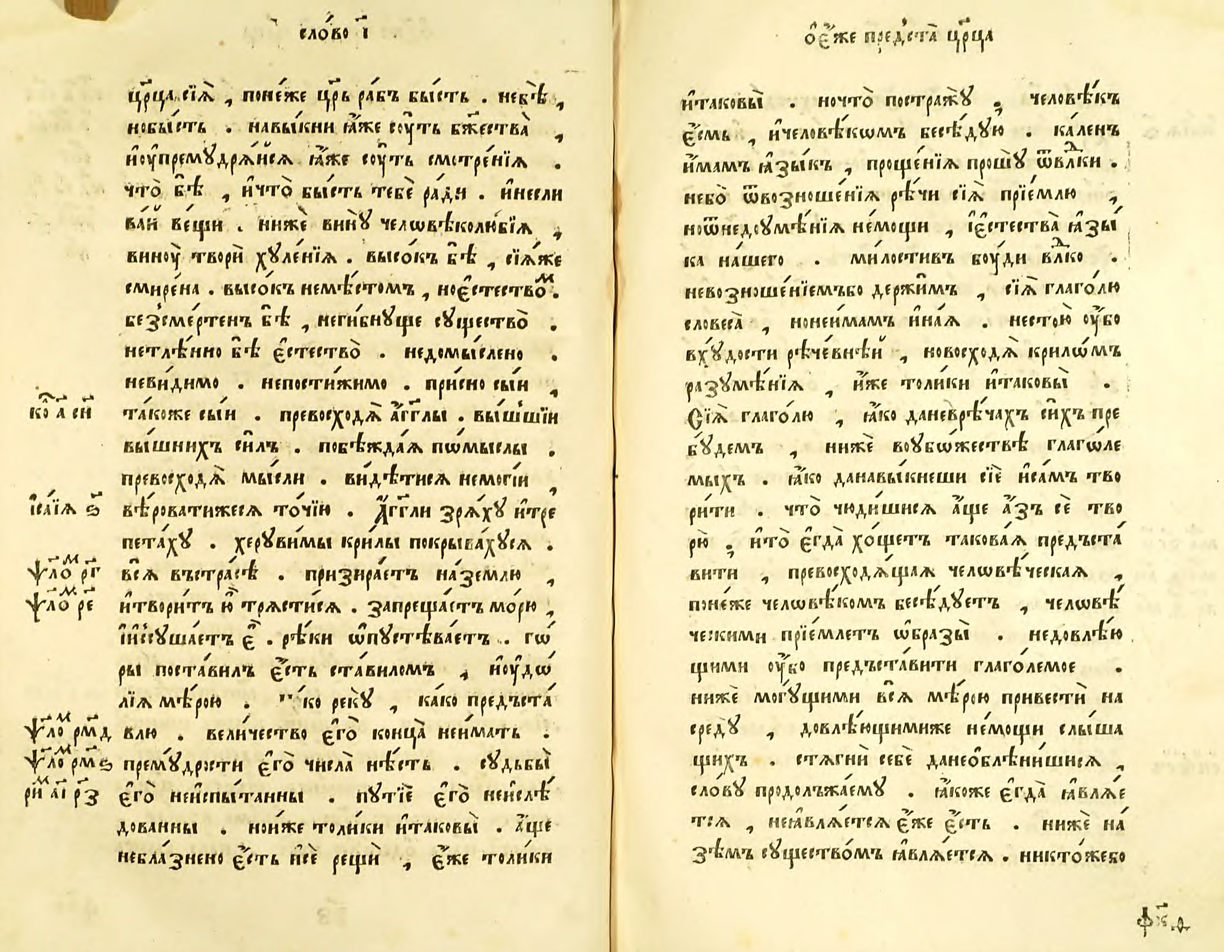 сло́во і҃
цр҃ца сїѧ̀ , поне́же цр҃ь ра́бъ бы́сть . небѣ̀ ,
нобы́сть . навы́кни ꙗ҆́же соу́ть бж҃ества̀ ,
и҆оупремꙋдрѧ́йсѧ ꙗ҆́же соу́ть смотре́нїѧ .
что̀ бѣ̀ , и҆что̀ бы́сть тебѐ ра́ди . и҆несли
ва́й ве́щи . нижѐ винꙋ̀ человѣколю́бїѧ ,
виноу̀ твори̂ хꙋле́нїѧ . высо́къ бѣ̀ , сїѧ́же
смире́на . высо́къ немѣ́стомъ , ноє҆стество́м .
безсме́ртенъ бѣ̀ , неги́бнꙋще сꙋщество̀ .
нетлѣ́нно бѣ̀ є҆стество̀ . недомы́слено .
неви́димо . непости́жимо . при́сно сы́и ,
та́коже сы́и . превосходѧ̀ а҆́гг҃лы . вы́шшїи
вы́шнихъ си́лъ . побѣжда́ѧ по́мыслы .
превосходѧ̀ мы́сли . ви́дѣтисѧ немогі́и ,
вѣ́роватижесѧ то́чїю . А҆́гг҃ли зрѧ́хꙋ и҆тре
пета́хꙋ . херꙋви́мы кри́лы покрыва́хꙋсѧ .
всѧ̀ въстра́сѣ . призира́етъ на́землю ,
и҆твори́тъ ю҆̀ трѧсти́сѧ . запреща́етъ мо́рю ,
и҆и҆ссꙋша́етъ є҆̀ . рѣ́ки ѡ҆пꙋстѣва́етъ . го
ры поста́вилъ є҆́сть ста́виломъ , и҆оудо
лїѧ мѣ́рою . ко рекꙋ̀ , ка́ко предъста́
влю . вели́чество є҆гѡ̀ конца̀ неи́мать .
премꙋ́дрости є҆гѡ̀ числа̀ нѣ́сть . сꙋдьбы̀
є҆гѡ̀ неи҆спы́танны . пꙋтїѐ є҆гѡ̀ неи҆слѣ́
дованны . нои́же толи́ки и҆таковы̀ . а҆́ще
небла́знено є҆́сть и҆сѐ рещѝ , є҆́же толи́ки
ко҃ а҃ си
і҆са́їѧ ѕ҃
ѱло́м рг҃
ѱло́м ре҃
ѱло́м рмд҃
ѱло́м рмѕ҃
ри́м аі҃ рз҃
ѡ҆є҆́же предста̀ цр҃ца
и҆таковы̀ . ночто̀ постражꙋ̀ , человѣ́къ
є҆́смь , и҆человѣ́кѡмъ бесѣ́дꙋю . ка́ленъ
и҆́мамъ ꙗ҆зы́къ , проще́нїѧ прошꙋ̀ ѿвлⷣки .
небо̀ ѿвозноше́нїѧ рѣ́чи сїѧ̀ прїе́млю ,
ноѿнедоумѣ́нїѧ не́мощи , і҆є҆стества̀ ꙗ҆зы́
ка на́шего . ми́лостивъ боу́ди влⷣко .
невозноше́нїемъбо держи́мъ , сїѧ̀ глаго́лю
словеса̀ , нонеи́мамъ и҆на́ѧ . нестою̀ оу҆̀бо
вхꙋ́дости рѣче́внѣи , новосходѧ̀ крило́мъ
разꙋмѣ́нїѧ , и҆́же толи́ки и҆таковы̀ .
Сїѧ̀ глаго́лю , ꙗ҆́ко даневрѣча́хъ си́хъ пре
бꙋ́демъ , нижѐ воубо́жествѣ глаго́ле
мыхъ . ꙗ҆́ко данавы́кнеши сїѐ и҆са́мъ тво
ри́ти . что̀ чюди́шисѧ а҆́ще а҆́зъ сѐ тво
рю̀ , и҆то̀ є҆гда̀ хо́щетъ такова́ѧ предъста́
вити , превосходѧ́щаѧ человѣ́ческаѧ ,
поне́же человѣ́комъ бесѣ́дꙋетъ , человѣ́
ческими прїе́млетъ ѡ҆́бразы . недовлѣ́ю
щими оу҆̀бо предъста́вити глаго́лемое .
нижѐ могꙋ́щими всѧ̀ мѣ́рою привестѝ на
средꙋ̀ , довлѣ́ющимиже не́мощи слы́ша
щихъ . стѧгнѝ себѐ данеѡблѣни́шисѧ ,
сло́вꙋ продолъжа́емꙋ . ꙗ҆́коже є҆гда̀ ꙗ҆влѧ́е
тсѧ , неꙗ҆влѧ́етсѧ є҆́же є҆́сть . нижѐ на
зѣ́мъ сꙋщество́мъ ꙗ҆влѧ́етсѧ . никто́жебо